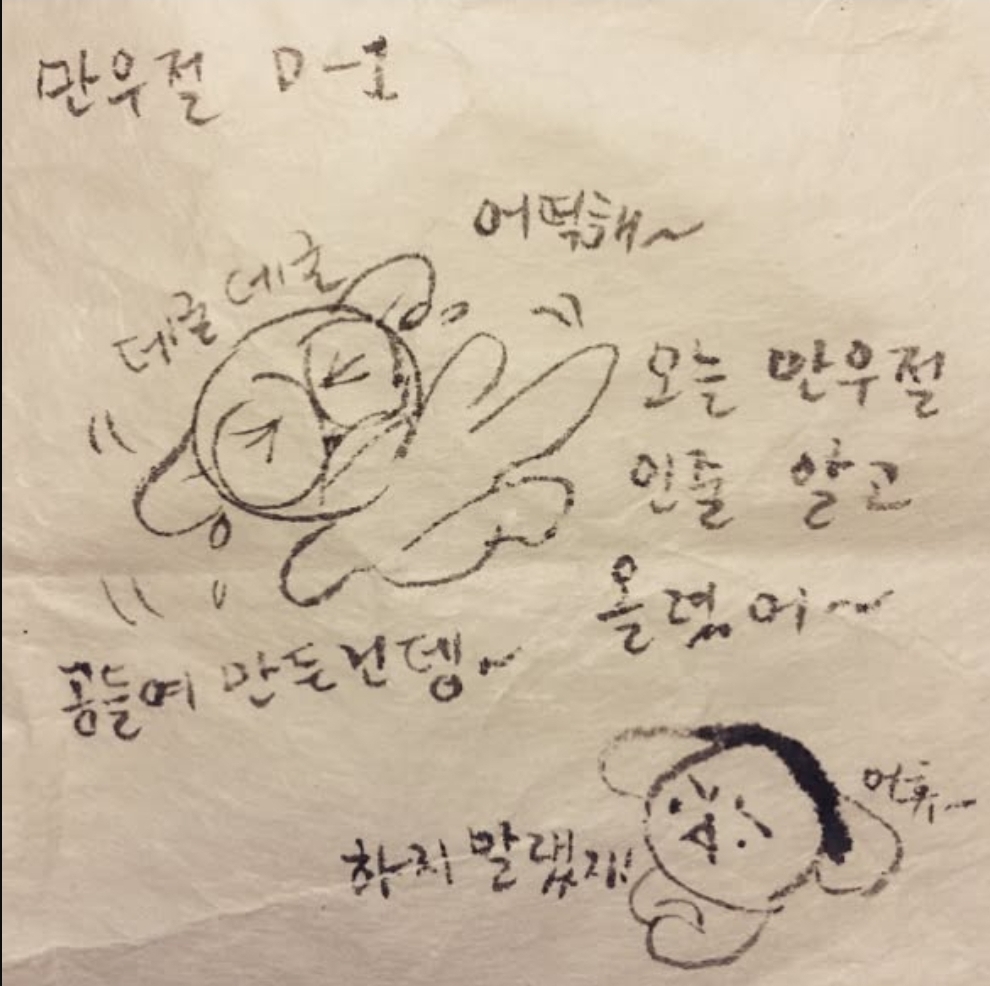 만우절 D-1
어떡해~
데굴데굴
오늘 만우절
인줄 알고
올렸어~
공들여 만든건뎅~
어휴~
하지 말랬지!!